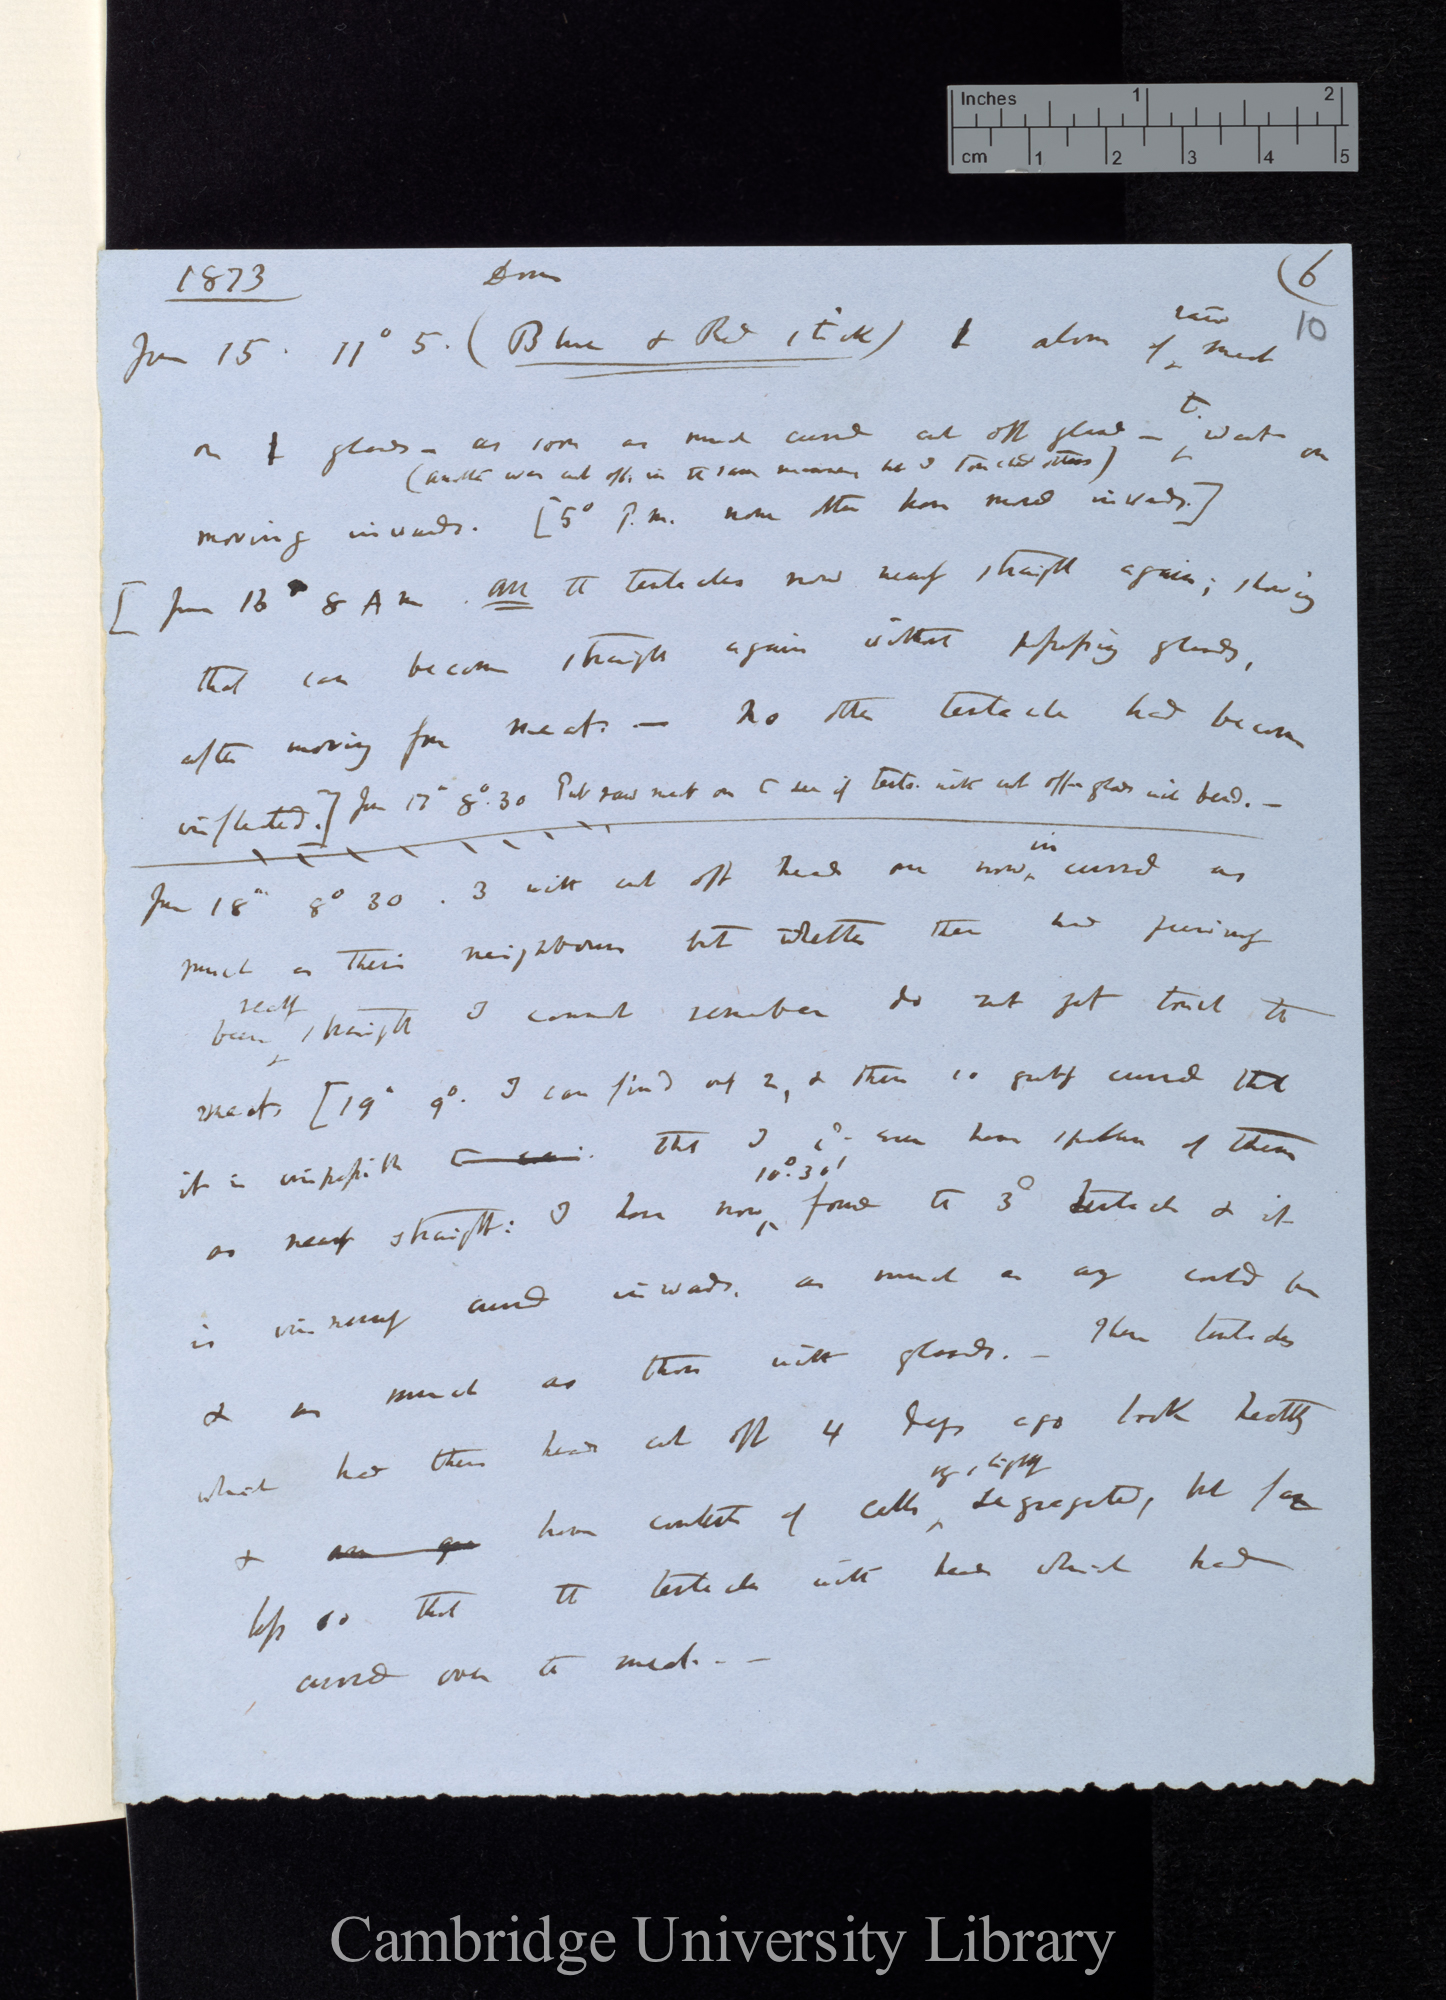 Inches 1 2
cm 1 2 3 4 5
1873 Dros (6
10
June 15. 11° 5. (Blue & Red stick) 1 atom of raw meat
on 1 glands – as soon as much curved cut off gland – t. went on
(another was cut off in the same manner but I touched others)
moving inwards. [5° P.m. none other have moved inwards.]
[June 16° 8 A m. All the tentacles now nearly straight again; showing
that can become straight again without possessing glands,
after moving from meat. — No other tentacle had become
inflected.] June 17° 8°.30 Put raw meat on to see if tents. with cut off glands will bend. –
June 18th 8° 30. 3 with cut off heads are now in curved as
much as their neighbours but whether these had previously
been nearly straight I cannot remember do not yet touch the
meat. [19° 9°. I can find only 2, & these so greatly curved that
it is impossible that I cd. ever have spoken of them
as nearly straight: I have now 10°.30' found the 3d tentacle & it
is immensely curved inwards, as much as any could be
& as much as those with glands. – These tentacles
which had their heads cut off 4 days ago look healthy
& have contents of cells very slightly segregated, but far
less so that the tentacles with heads which had
curved over the meat. – –
Cambridge University Library